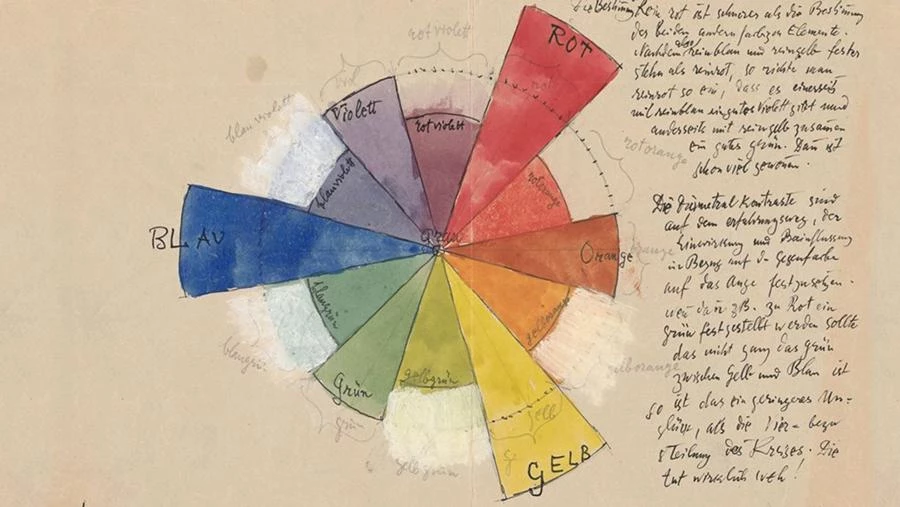 rotviolett
blauviolett
viol
violett
rotviolett
ROT
blauviolett
rotorange
rotorange
BLAU
Grau
Orange
orange
blaugrün
gelborange
gelborange
blaugrün
Grün
grün
gelbgrün
gelbgrün
gelb
GELB
Die Bestimung Rein rot ist schwerer als die Bestimung
der beiden andern farbigen Elemente.
Nachdem aber reinblau und reingelb fester
stehn als reinrot, so richte man
reinrot so ein, dass es einerseits
mit reinblau ein gutes violett gibt und
anderseits mit reingelb zusammen
ein gutes Dann ist
schon viel gewonnen.
Die diametral Kontraste sind
auf dem erfahrungsweg, der
Einwirkung und Beeinflussung
in Bezug auf die Gegenfarbe
auf das Auge festzusetzen.
wenn dann zB. zu Rot ein
grün festgestellt werden sollte
das nicht ganz das grün
zwischen Gelb und Blau ist
so ist das ein geringeres Un=
glück, als die bezw
teilung des Kreises. Die
tut wirklich weh!